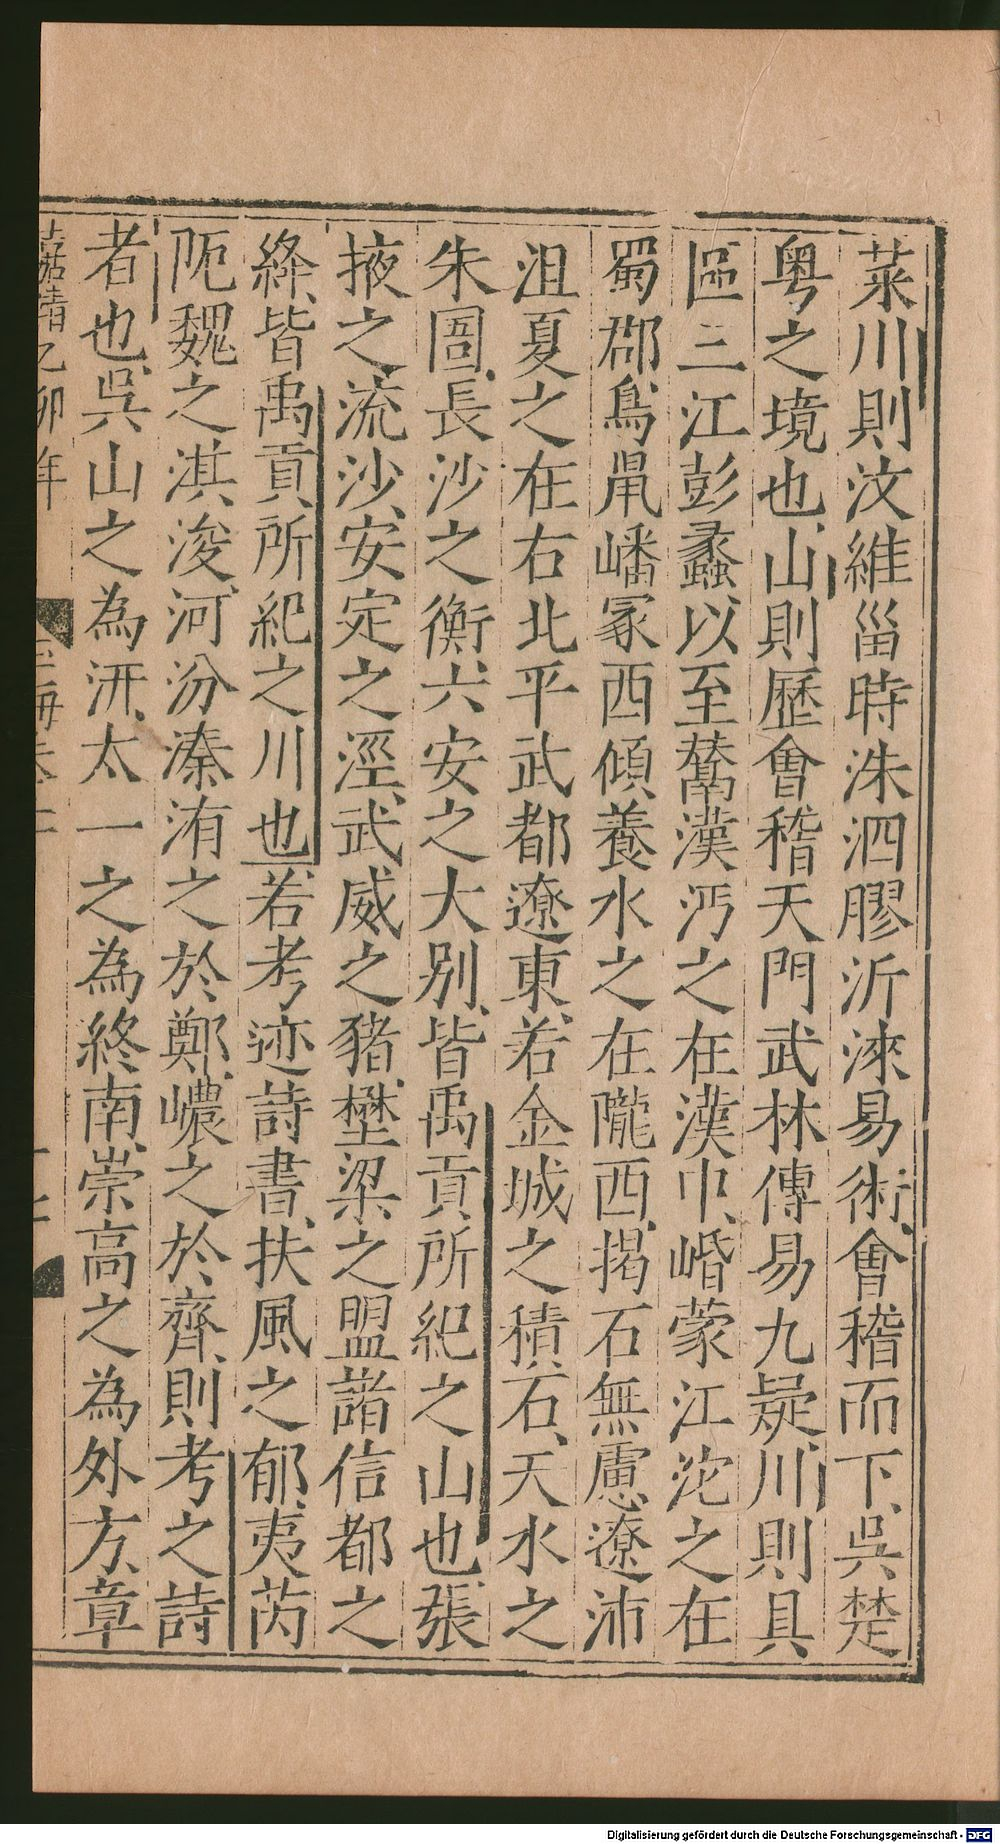 萊川則汶維甾時洙泗膠沂淶易術會稽而下吳楚
粤之境也山則歷會稽天門武林傳易九疑川則具
區三江彭蠡以至鬵漢沔之在漢中㟭蒙江沱之在
蜀郡鳥鼠嶓冢西傾養水之在隴西揭石無慮遼沛
沮夏之在右北平武都遼東若金城之積石天水之
朱圄長沙之衡六安之大别皆禹貢所紀之山也張
掖之流沙安定之涇武威之豬壄梁之盟諸信都之
絳皆禹貢所紀之川也若考迹詩書扶風之郁夷芮
阨魏之淇浚河汾溱洧之於鄭巙之於齊則考之詩
者也吳山之為汧太一之為終南崇高之為外方章
嘉靖乙卯年
玉海卷十
Digitalisierung gefördert durch die Deutsche Forschungsgemeinschaft - DFG